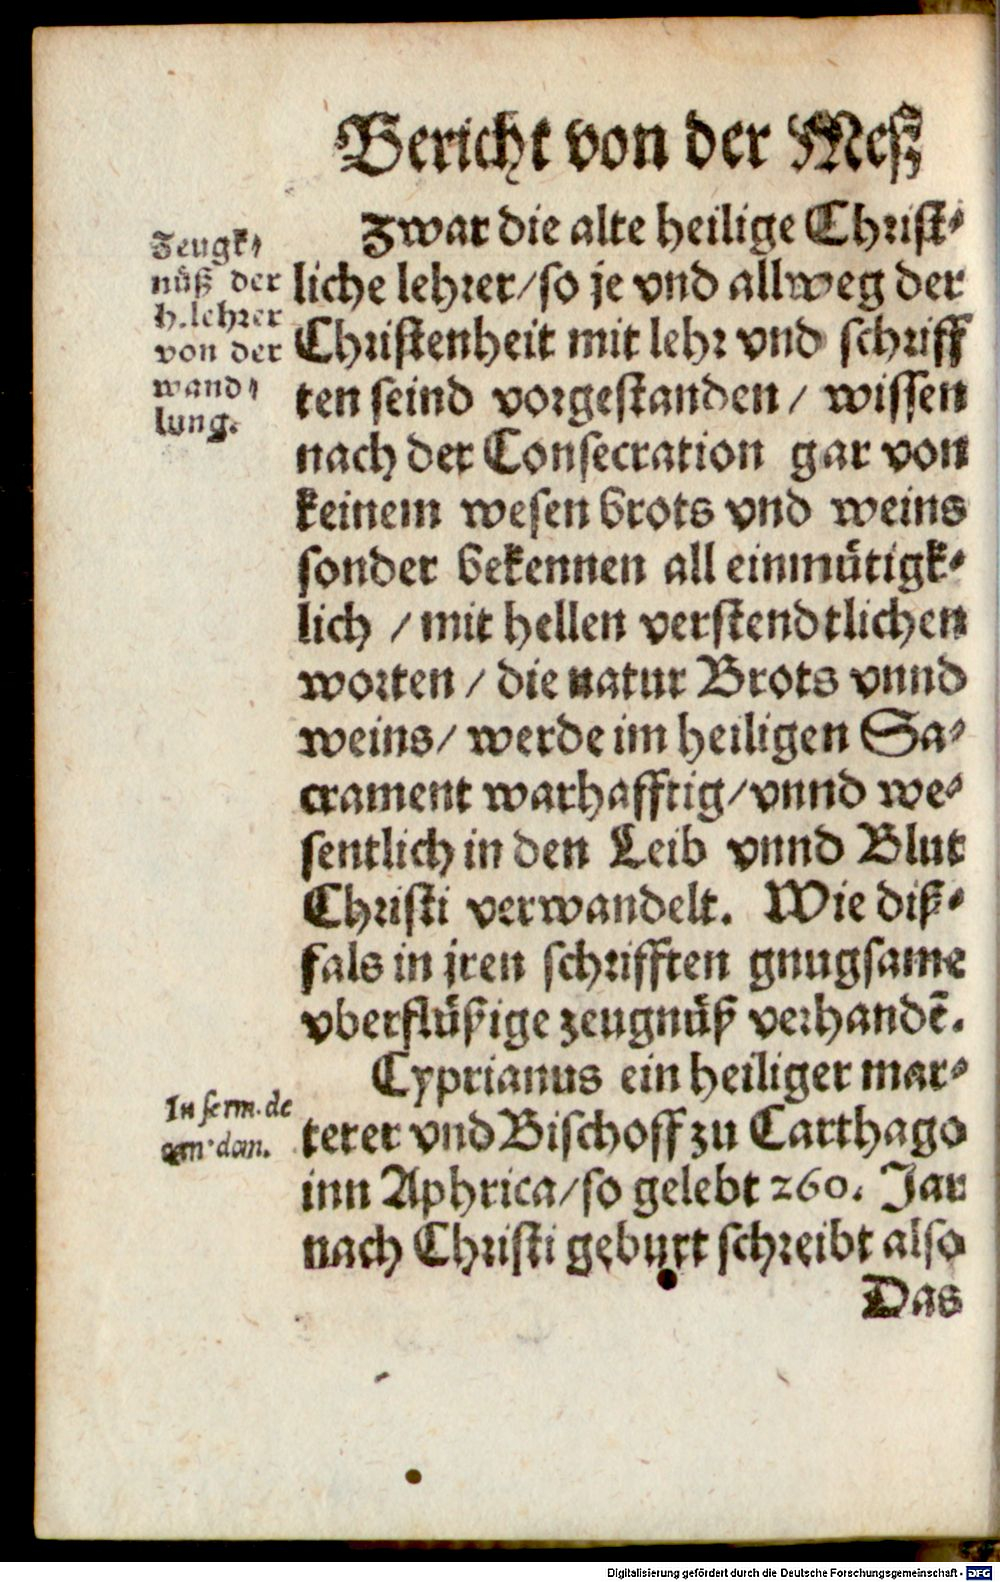 Bericht von der Meß
Zwar die alte heilige Christ-
liche lehrer/so je vnd allweg der
Christenheit mit lehr vnd schriff
ten seind vorgestanden/ wissen
nach der Consecration gar von
keinem wesen brots vnd weins
sonder bekennen all einmütigk-
lich / mit hellen verstendtlichen
worten/ die natur Brots vnnd
weins/ werde im heiligen Sa-
crament warhafftig/vnnd we-
sentlich in den Leib vnnd Blut
Christi verwandelt. Wie diß-
fals in jren schrifften gnugsame
vberflüßige zeugnüß verhandē.
Cyprianus ein heiliger mar-
terer vnd Bischoff zu Carthago
inn Aphrica/so gelebt 260. Jar
nach Christi geburt schreibt also
Das
Zeugk-
nüß der
h.lehrer
von der
wand-
lung.
In serm. de
dom.
Digitalisierung gefördert durch die Deutsche Forschungsgemeinschaft - DFG